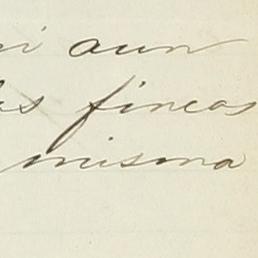 ni aun
las fincas
misma